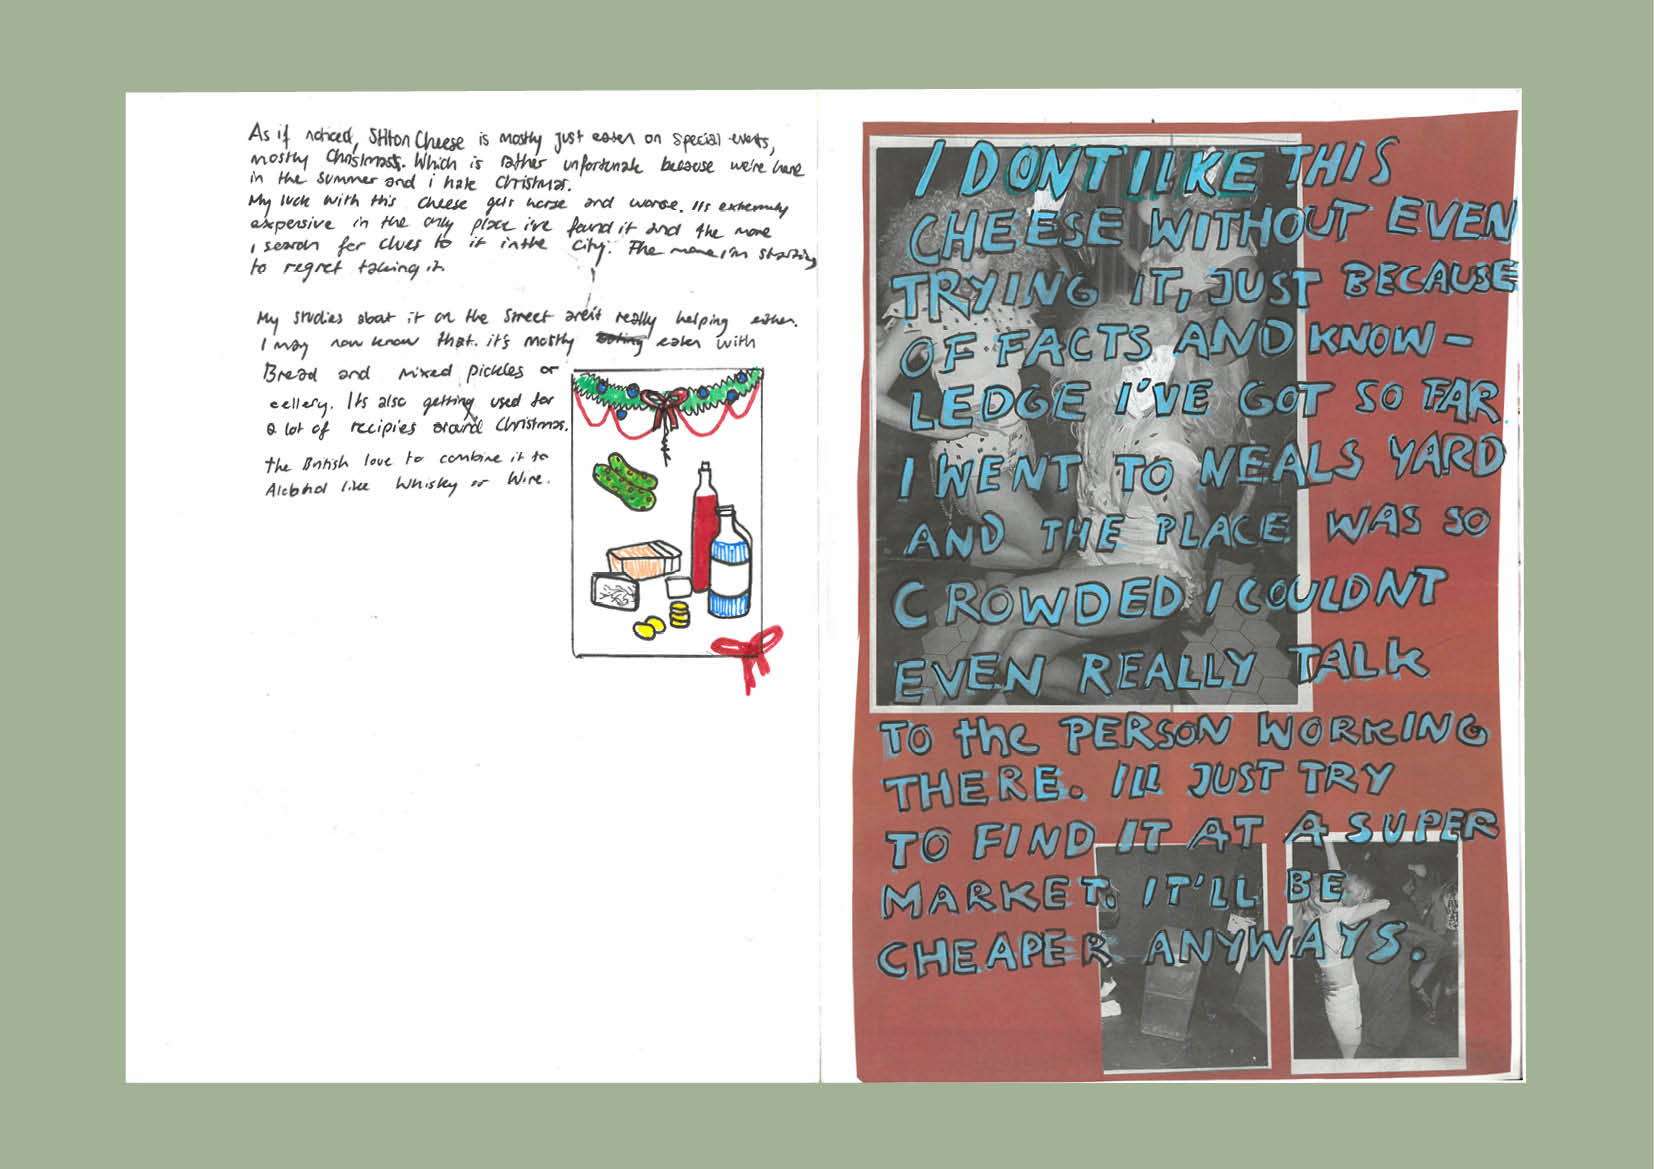 As if noticed, Stilton Cheese is mostly just eaten on special events,
mostly Christmas. Which is rather unfortunate because we're here
in the summer and i hate Christmas.
My luck with this cheese gets worse and worse. Its extremely
expensive in the only place ive found it and the more
I search for clues to it in the City. The more i'm starting
to regret taking it.
My studies about it on the street aren't really helping either.
I may now know that it's mostly eaten with
Bread and mixed pickles or
cellery. Its also getting used for
a lot of recipies around Christmas.
The British love to combine it to
Alcohol like Whisky or Wine.
I DONT LIKE THIS
CHEESE WITHOUT EVEN
TRYING IT, JUST BECAUSE
OF FACTS AND KNOW-
LEDGE I'VE GOT SO FAR.
I WENT TO NEALS YARD
AND THE PLACE WAS SO
CROWDED I COULDNT
EVEN REALLY TALK
TO the PERSON WORKING
THERE. ILL JUST TRY
TO FIND IT AT A SUPER
MARKET. IT'LL BE
CHEAPER ANYWAYS.